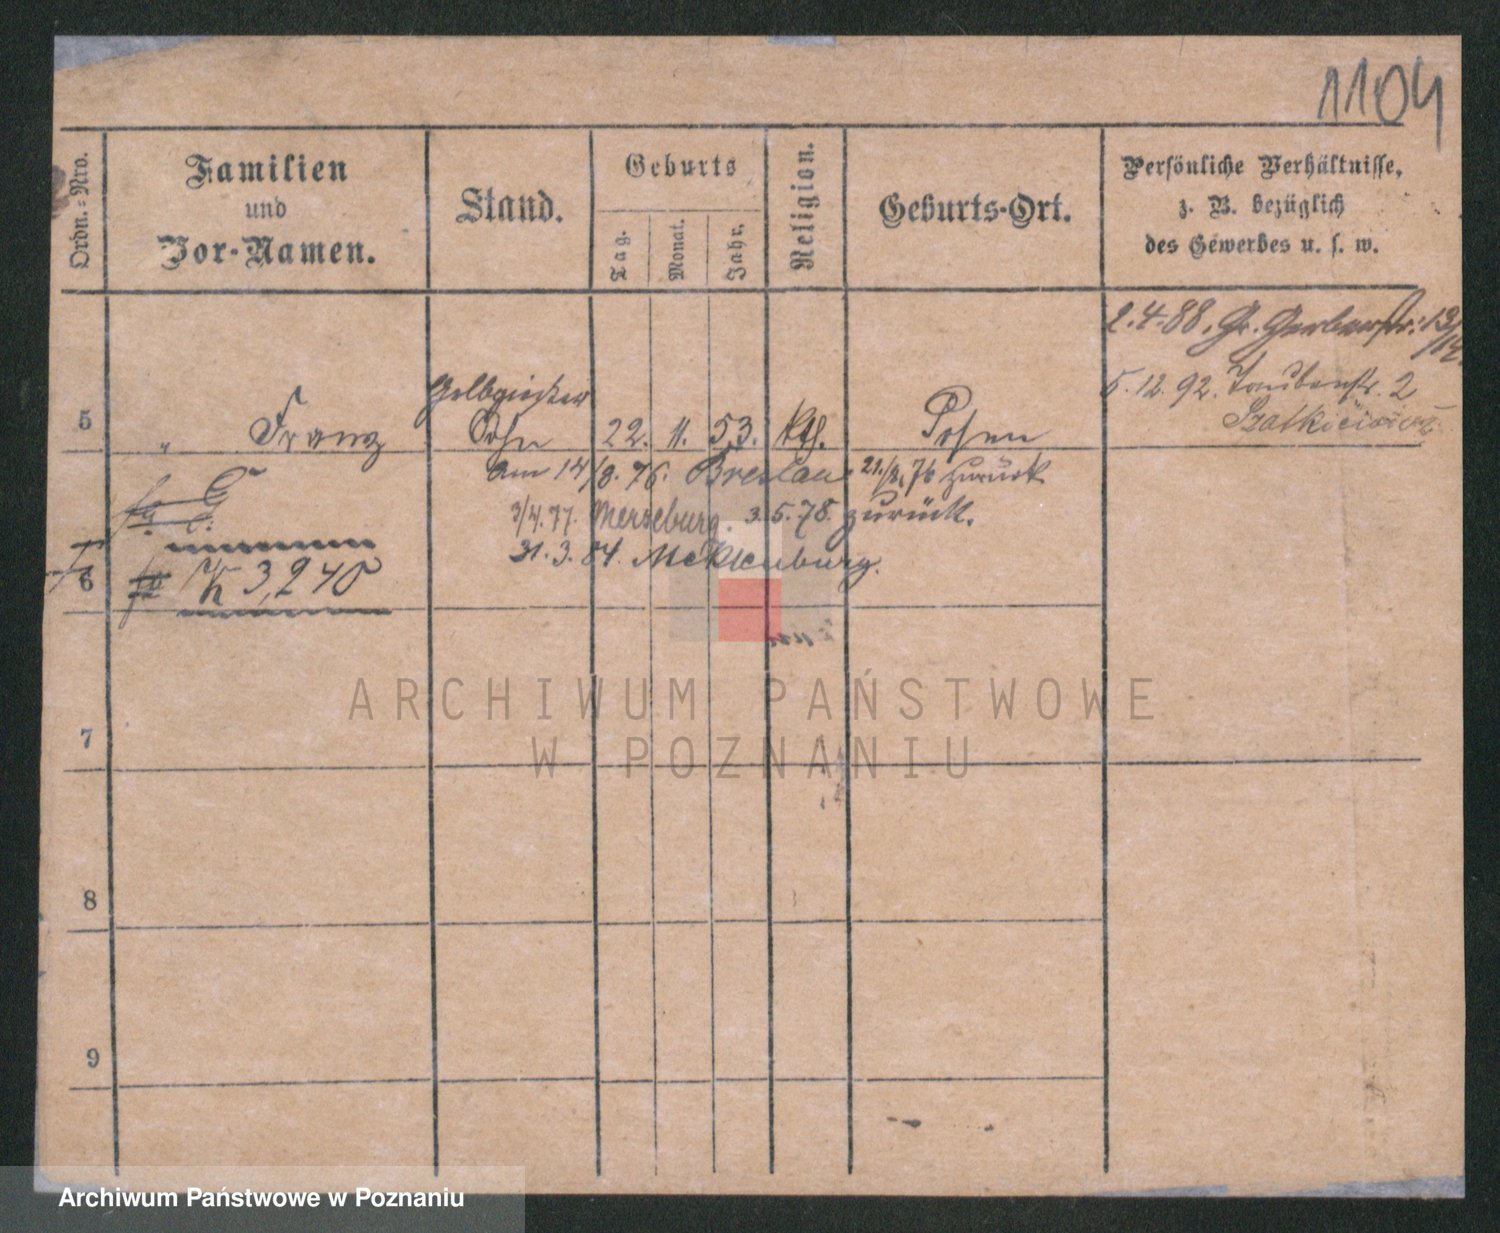 1104
Ordn.=Nro.
Familien
und
Vor-Namen.
Stand.
Geburts
Tag.
Monat.
Jahr.
Religion.
Geburts-Ort.
Persönliche Verhältnisse,
z. B. bezüglich
des Gewerbes u. s. w.
2.4.88. Gr. Gerberstr. 13/14.
5.12.92. Taubenstr. 2
Gelbgießer
5 " Franz Sohn 22. 11. 53. kth. Posen
am 14/8. 76. Breslau. 21./8. 76 zurück
3/4. 77. Merseburg. 3.5.78. zurück.
31.3.84. Mecklenburg.
6
7
8
9
ARCHIWUM PAŃSTWOWE
W POZNANIU
Archiwum Państwowe w Poznaniu